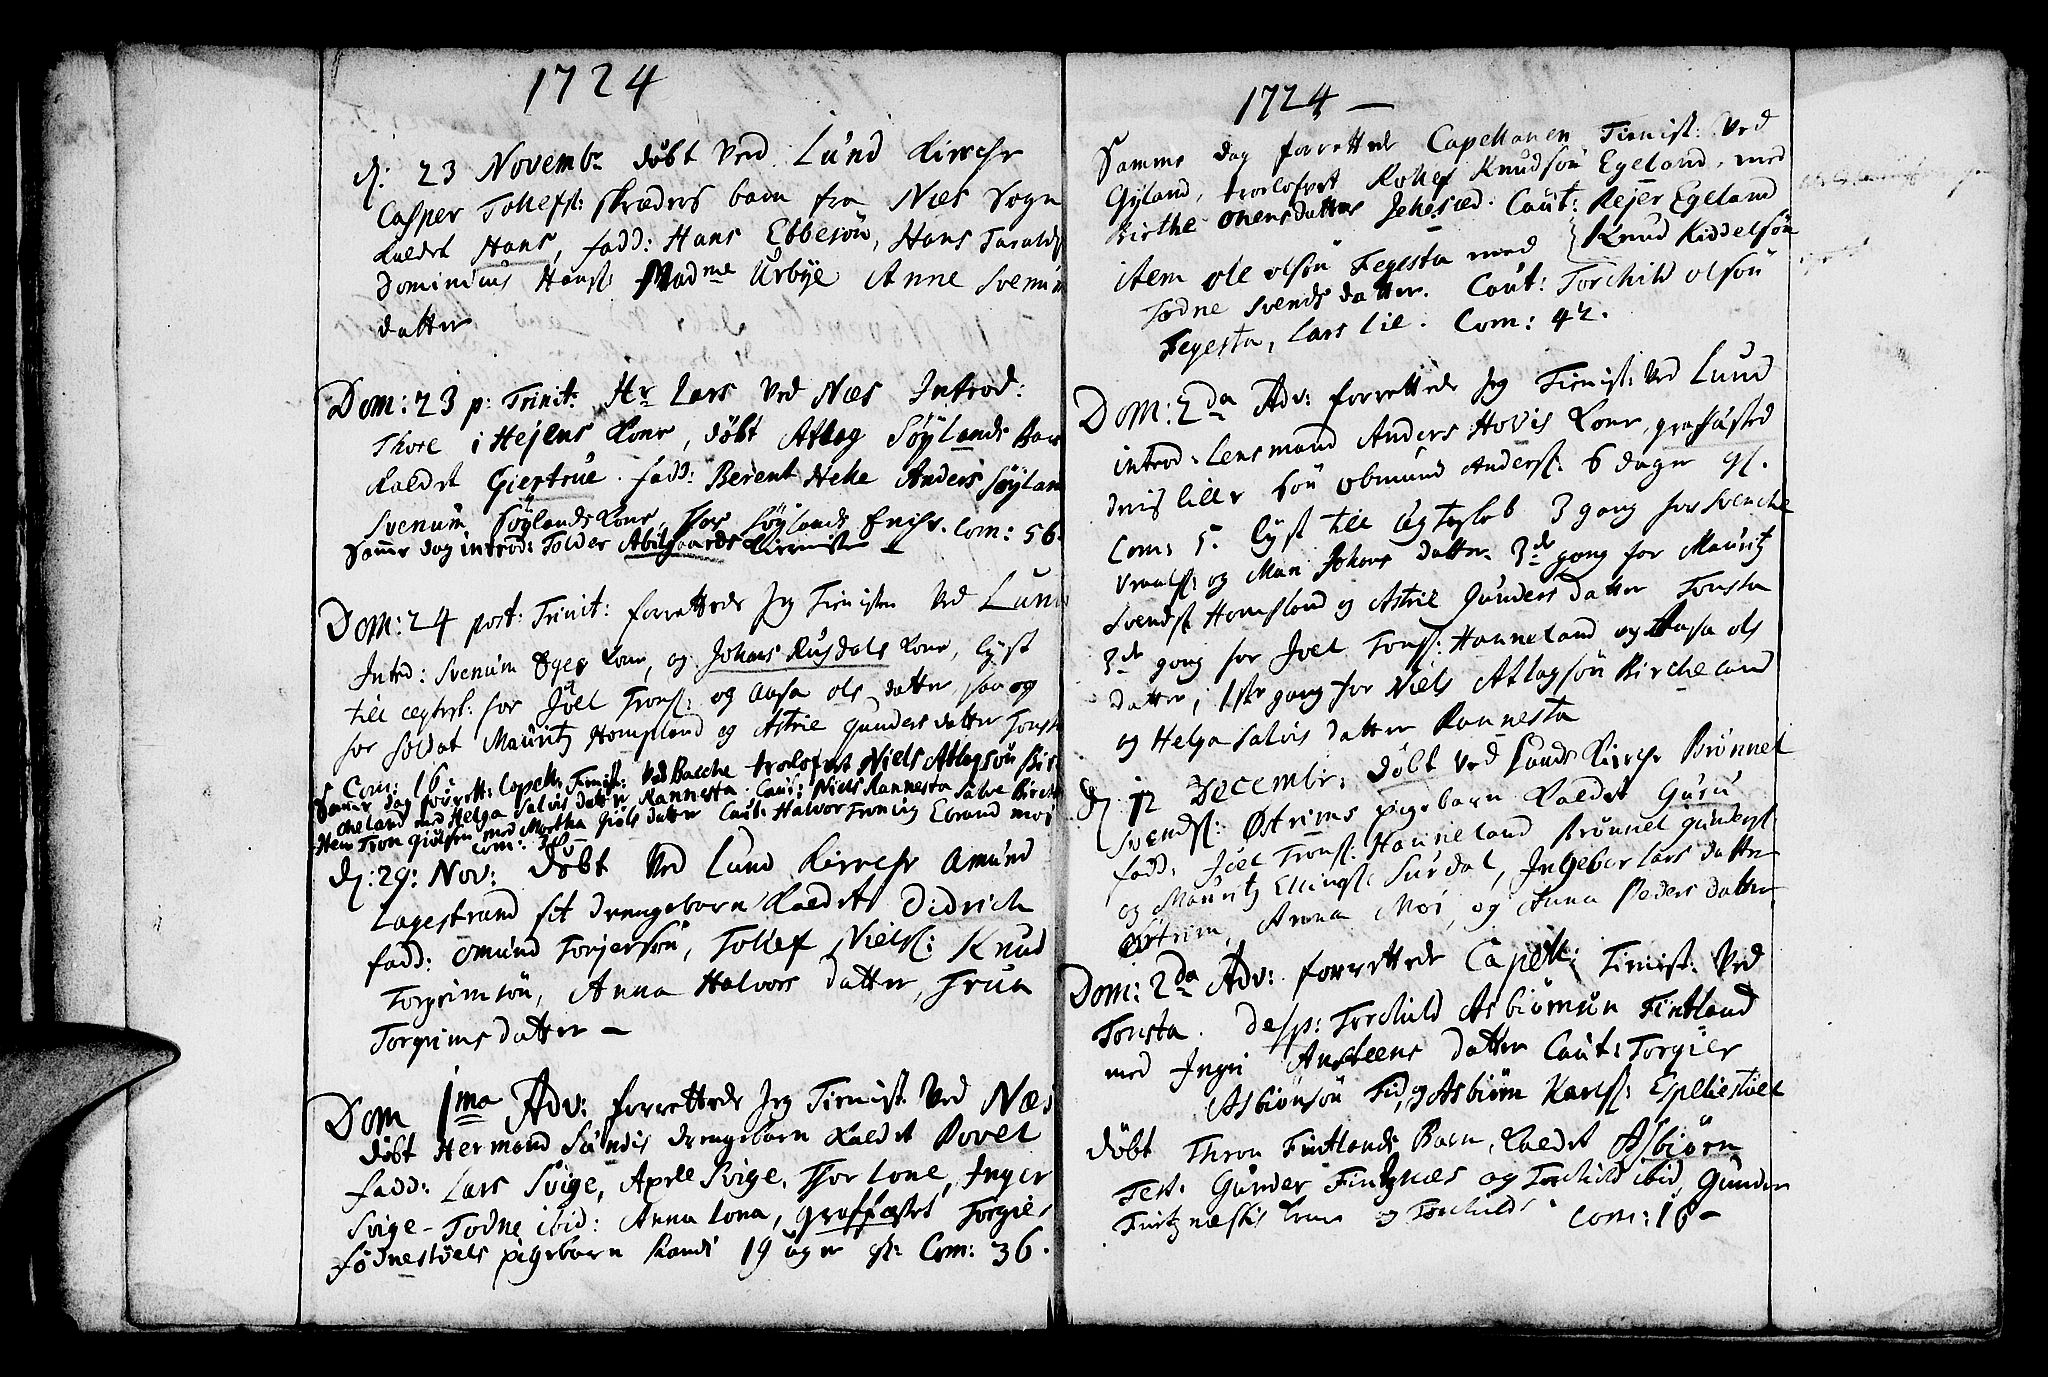 1724
d: 23 Novembr døbt Ved Lund Kirche
Casper Tollefs: skræders barn fra Næs Sogn
kaldet Hans, fadd: Hans Ebbesön, Hans Taralds
Dominicus Hans: Madme Urbye Anne Svenu
datter
Dom: 23 p: Trinit: Hr Lars Ved Næs Introd:
Thore i Hejens Kone, døbt Atlag Söylands Bar
Kaldet Giertrue. fadd: Berent Helle Anders Söylan
Svenum Söylands Kone, Thor Söylands Com: 56.
Samme dag introd: Tolder Abilgaards
Dom: 24 post: Trinit: forrettede Jeg Tienisten Ved Lund
Intrd: Svenum Eges Kone, og Johans Rusdals Kone, lyst
till ægtesk: for Joel Trons: og Aasa ols datter saa og
for soldat Mauritz Hompland og Astrie Gunders datter Tonst
Com: 16.
Samme dag forrett: Capell: Tienist: Ved Bacche trolofvet Niels Atlagsön Bir
cheland med Helga Salvis datter Rannesta. Caut: Niels Rannesta Salve Birch
Item Tron Giölsen med Martha Giöls datter Caut: Halvor Tronvig Ebrand moi
Com:
d: 29: Nov: døbt Ved Lund Kirche Amund
Lagestrand sit drengebarn Kaldet Didrich
fadd: omund Torjersön, Tollef Niels: Knud
Torgrimsön, Anna Halvors datter, Trua
Torgrims datter —
Dom 1ma Adv: forrettede Jeg Tienist Ved Næs
døbt Hermand Sundis drengebarn Kaldet Povel
fadd: Lars Svige, Axell Svige, Thor Lone, Inger
Svige - Todne ibid: Anna Lona, graffæstet Torgies
Födnestöels pigebarn Randi 19 uger gl: Com: 36.
1724 —
Samme dag forrettede Capellanen Tienist: Ved
Gyland, trolofvet Rollef Knudsön Egeland, med
Birthe Onensdatter Jehesæd. Caut: Rejer Egeland
Knud Kiddelsön
item ole olsön Fegesta med
Todne Svends datter. Caut: Torchild olsön
Fegesta, Lars Lie. Com: 42.
Dom: 2da Adv: forrettede Jeg Tienist: Ved Lund
introd: Lensmand Anders Hovis Kone, graffæsted
dens lille sön obmund Anders: 6 dager gl.
Com: 5. lyst till Egteskab 3 gang for Svenche
Vraals: og Mari Johans datter. 3de gang for Mauritz
Svends: Hompland og Astrie Gunders datter Tonsta
3de gang for Joel Trons: Hanneland og Aasa ols
datter, 1ste gang for Niels Atlagsön Bircheland
og Helga Salvis datter Rannesta
d: 12 Decembr: døbt Ved Lunds Kirche Brönnel
Svends: Østrims pigebarn Kaldet Guru
fadd: Joel Trons: Hanneland Brönnel Gunders:
og Mauritz Ellings: Surdal, Ingebor Lars datter
Østrim, Anna Moi, og Anna Peders datter
Dom: 2da Adv: forrettede Capell: Tienist: Ved
Tonsta. desp: Torchild Asbiörnsön Fintland
med Ingri Ansteens datter Caut: Torgier
Asbiönsön Fid, og Asbiörn Karls: Espeliestöel
døbt Thron Fintlands Barn, Kaldet Asbiörn
Test: Gunder Fintznæs og Torchild ibid, Gunder
Fintznæssis Kone og Torchilds. Com: 16 —